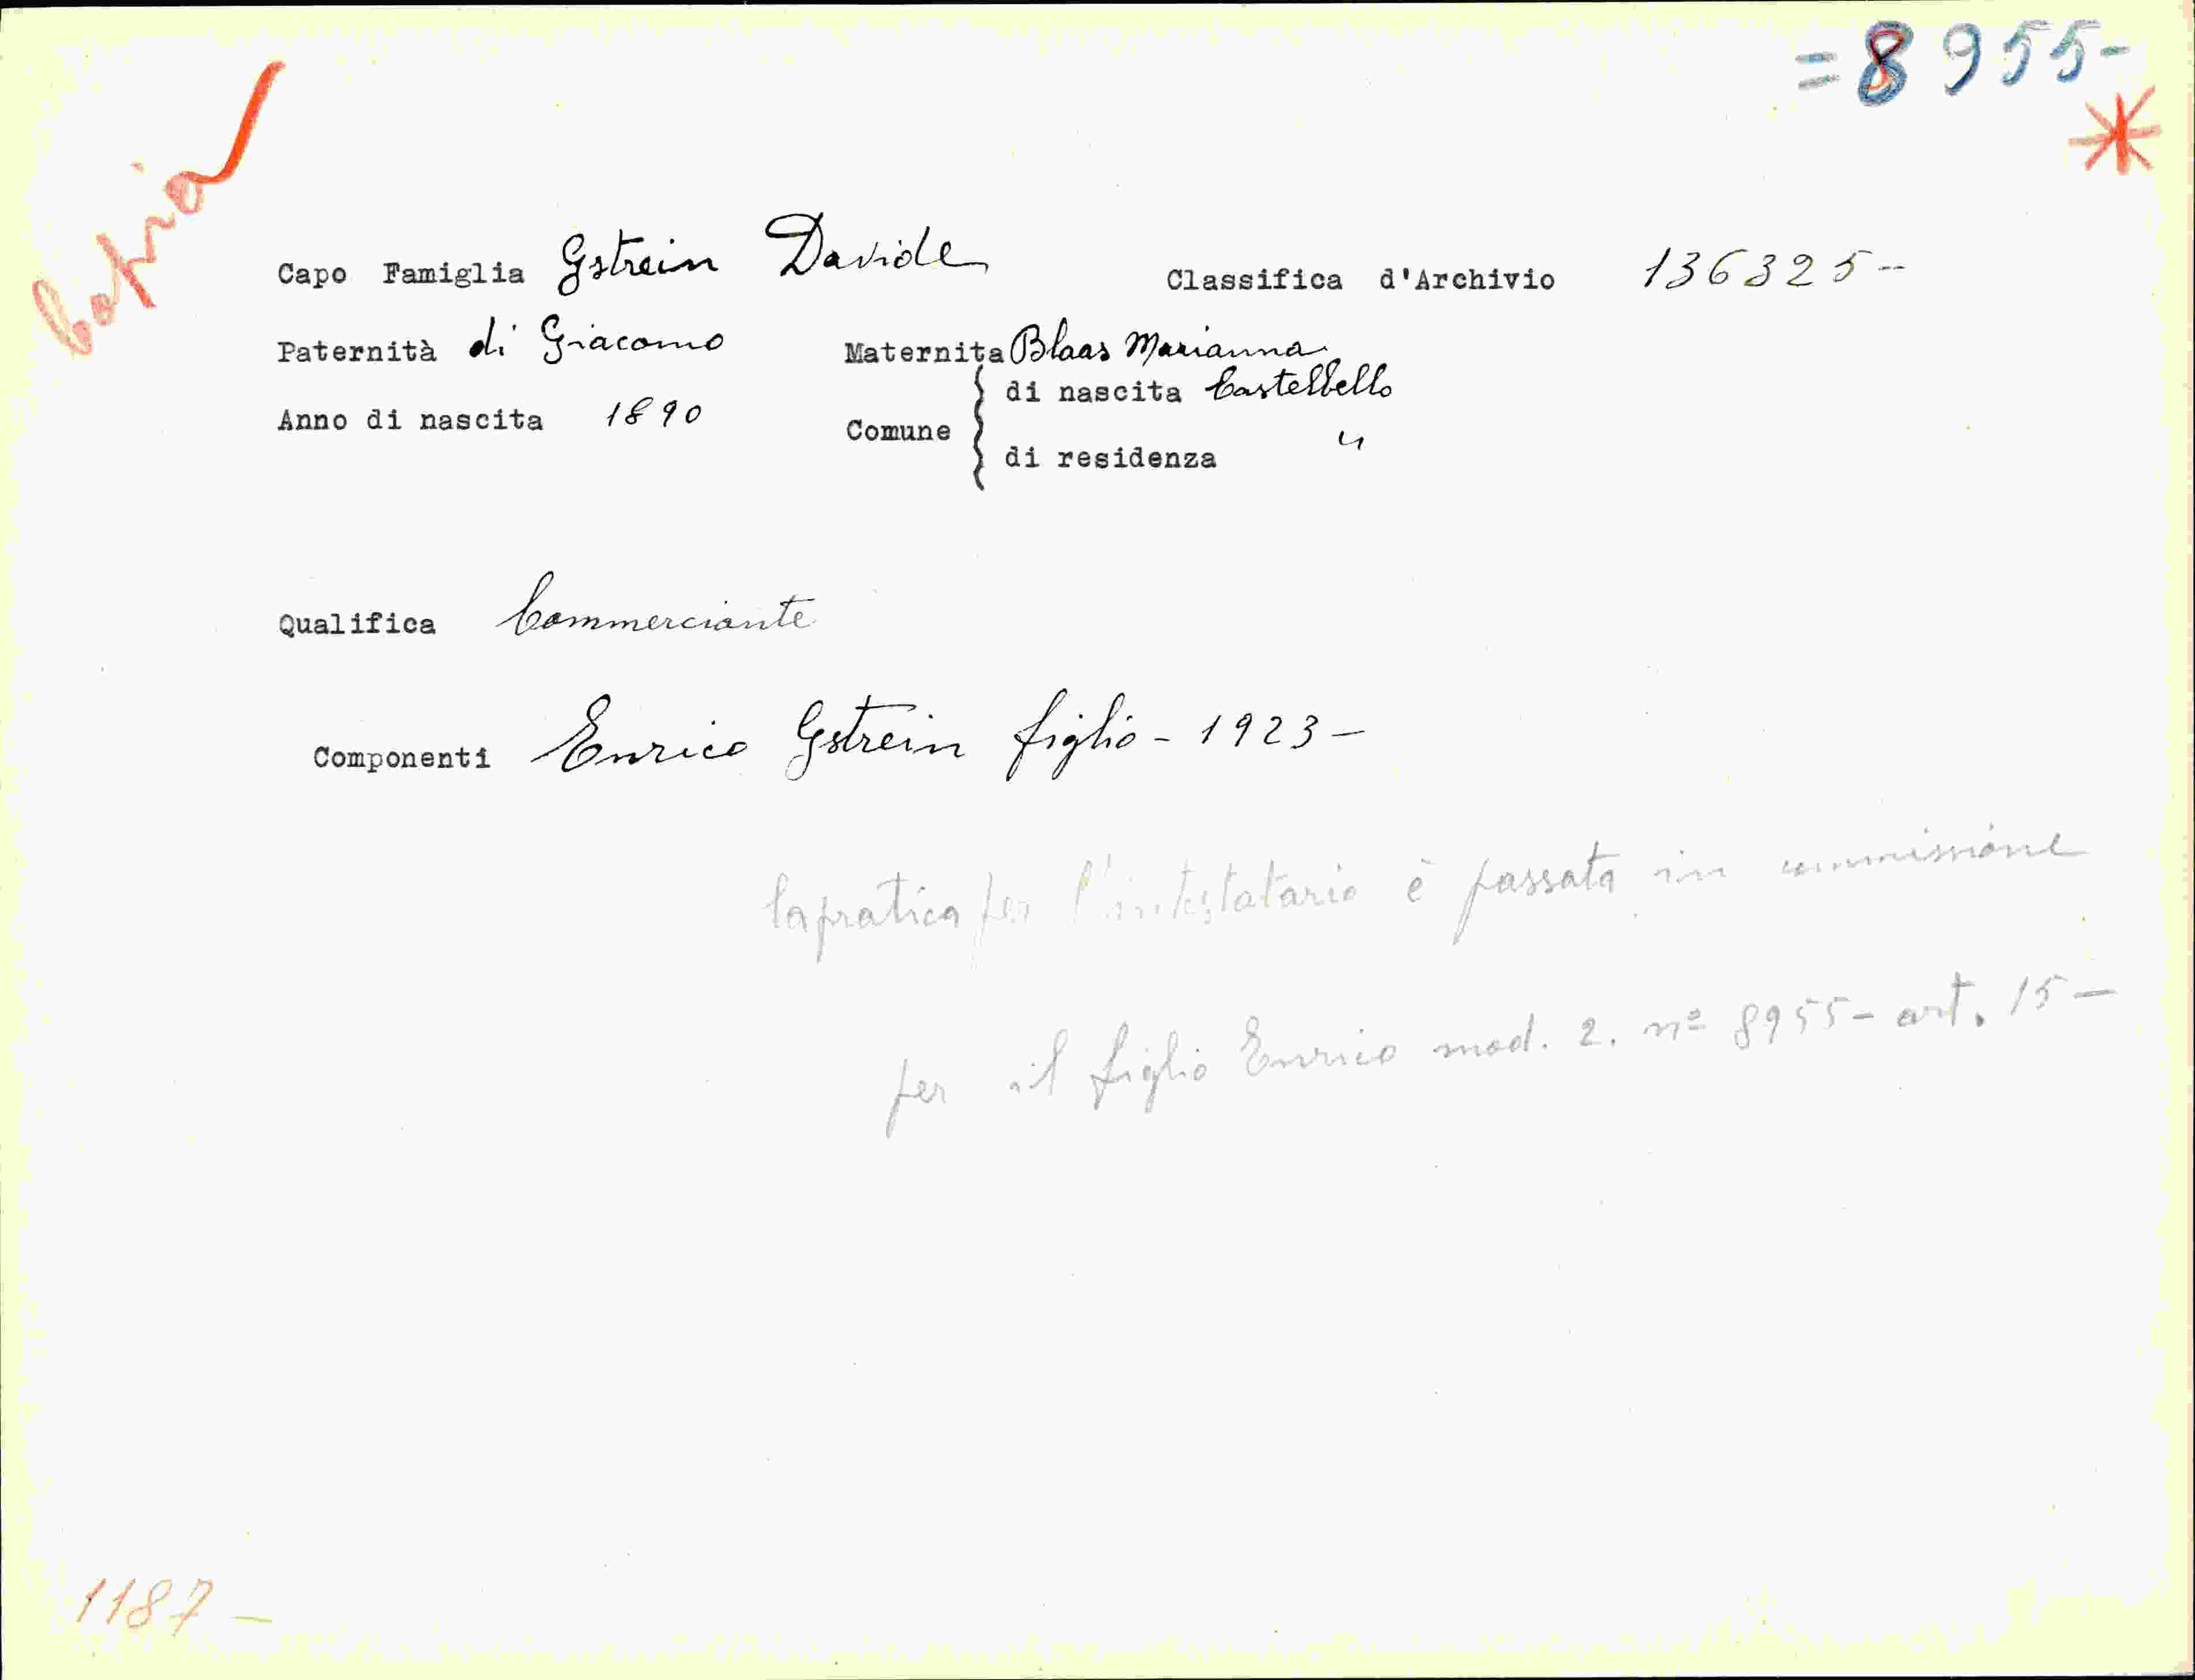 =8955-
Copia
Capo Famiglia Gstrein Davide Classifica d'Archivio 136325-
Paternità di Giacomo Maternita Blaas Marianna
di nascita Castelbello
Anno di nascita 1890 Comune
di residenza "
Qualifica Commerciante
Componenti Enrico Gstrein figlio - 1923 -
la pratica per l'intestatario è passata in commissione
per il figlio Enrico mod. 2. nº 8955 - art. 15 -
1187 -